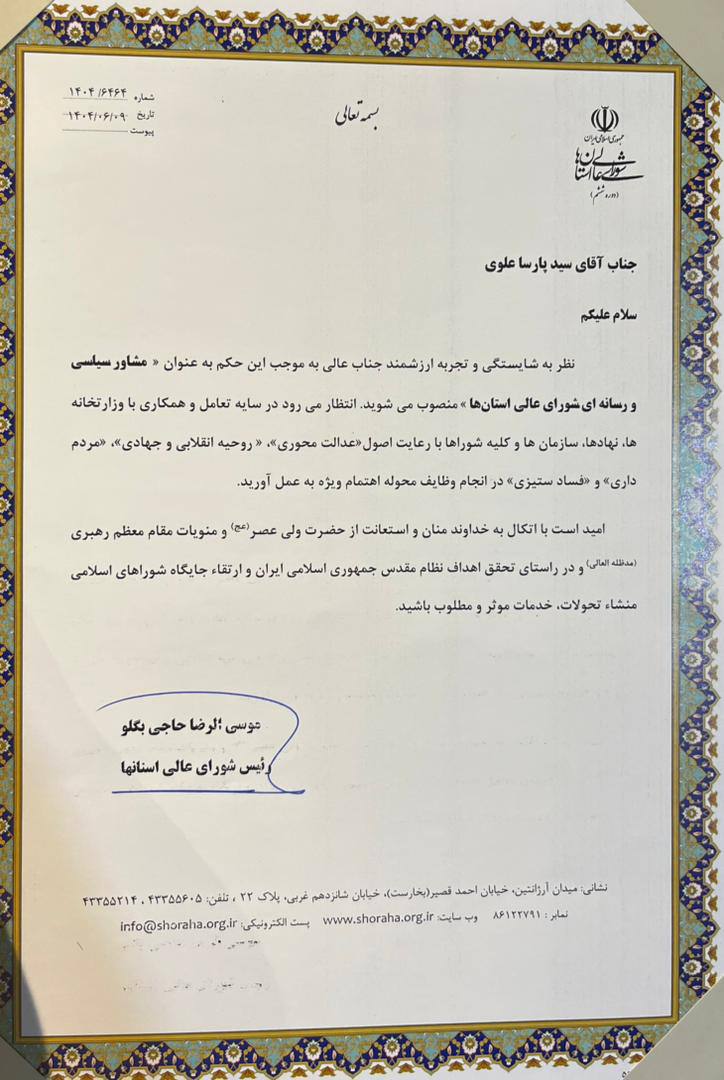 بسمه تعالی
جمهوری اسلامی ایران
شورای عالی استان‌ها
(دوره ششم)
شماره ۱۴۰۴/۶۴۶۴
تاریخ ۱۴۰۴/۰۶/۰۹
پیوست
جناب آقای سید پارسا علوی
سلام علیکم
نظر به شایستگی و تجربه ارزشمند جناب عالی به موجب این حکم به عنوان « مشاور سیاسی
و رسانه ای شورای عالی استان‌ها » منصوب می شوید. انتظار می رود در سایه تعامل و همکاری با وزارتخانه
ها، نهادها، سازمان ها و کلیه شوراها با رعایت اصول«عدالت محوری»، « روحیه انقلابی و جهادی»، «مردم
داری» و «فساد ستیزی» در انجام وظایف محوله اهتمام ویژه به عمل آورید.
امید است با اتکال به خداوند منان و استعانت از حضرت ولی عصر(عج) و منویات مقام معظم رهبری
(مدظله العالی) و در راستای تحقق اهداف نظام مقدس جمهوری اسلامی ایران و ارتقاء جایگاه شوراهای اسلامی
منشاء تحولات، خدمات موثر و مطلوب باشید.
موسی الرضا حاجی بگلو
رئیس شورای عالی استانها
نشانی: میدان آرژانتین، خیابان احمد قصیر(بخارست)، خیابان شانزدهم غربی، پلاک ۲۲ ، تلفن: ۴۳۳۵۵۶۰۵ ، ۴۳۳۵۵۲۱۴
نمابر : ۸۶۱۲۲۷۹۱ وب سایت: www.shoraha.org.ir پست الکترونیکی: info@shoraha.org.ir